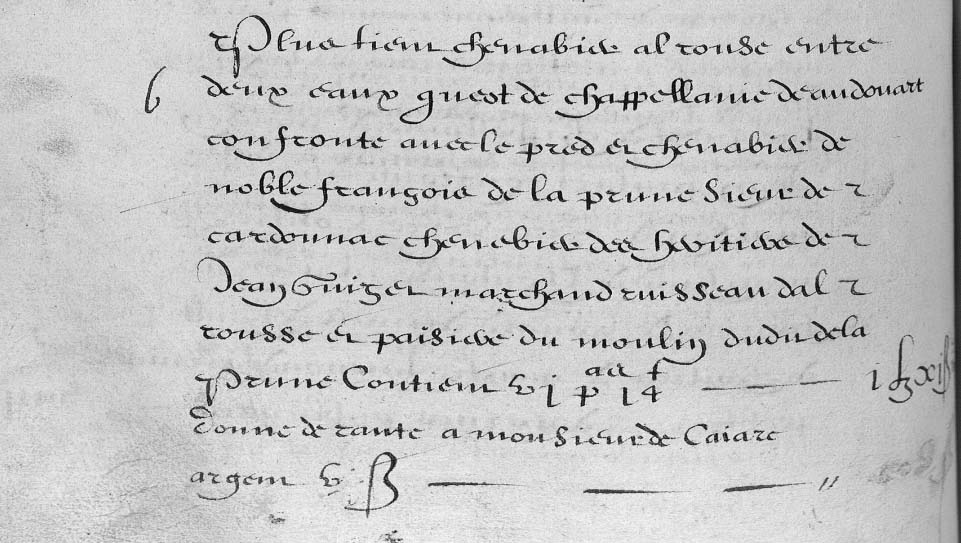 Plus tient chenabier al rouse entre
6 deux eaux quest de chappellanie de audouart
confronte avec le pred et chenabier de
noble françois de la prune sieur de
cardonnac chenebier des heritiers de
Jean Guiget marchand ruisseau dal
rousse et paisiere du moulin dudit de la
prune Contient vj p 14
donne de rante a monsieur de Caiarc
argent vj ß